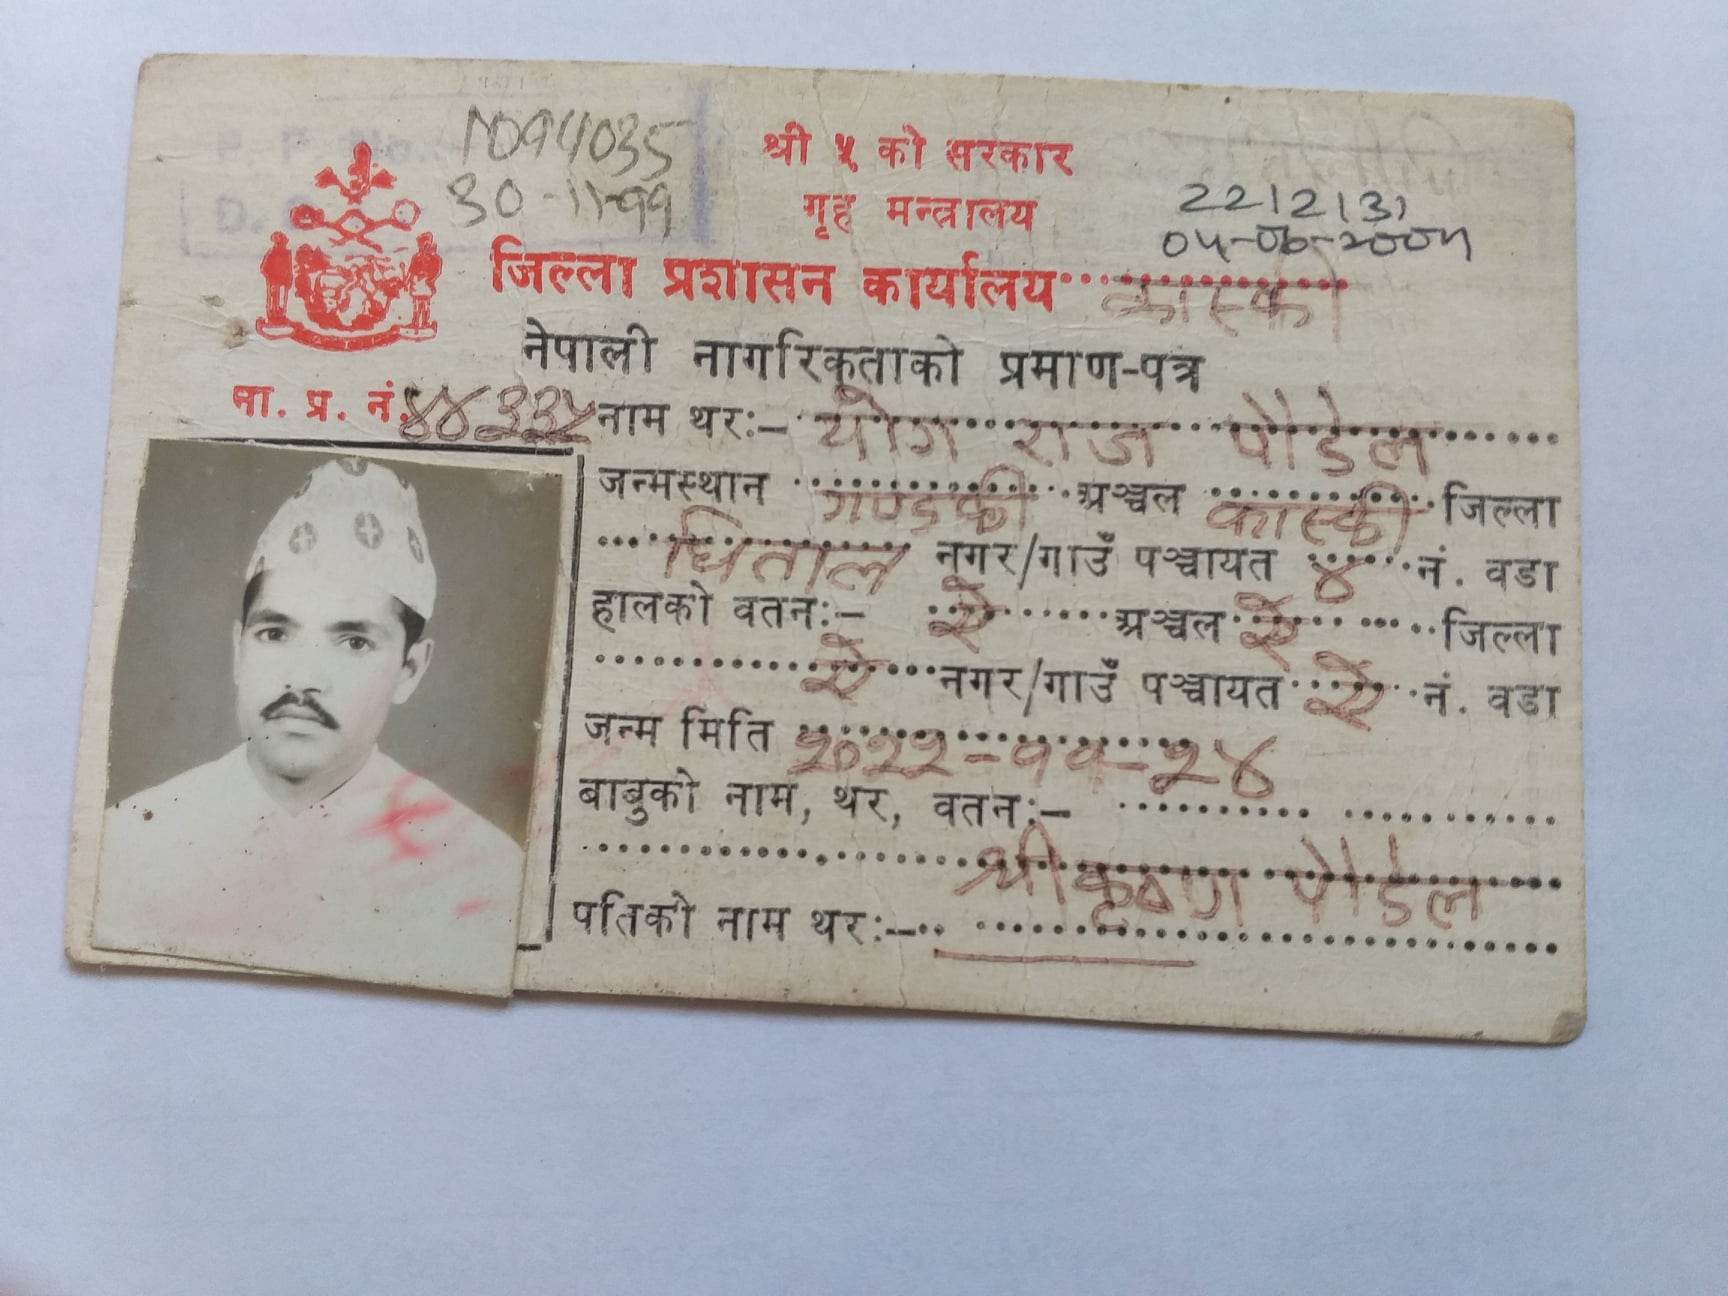 N094035
30-11-99
श्री ५ को सरकार
गृह मन्त्रालय
2212131
04-06-2004
जिल्ला प्रशासन कार्यालय कास्की
नेपाली नागरिकताको प्रमाण-पत्र
ना. प्र. नं. ४४३३५
नाम थर:- योग राज पौडेल
जन्मस्थान गण्डकी अञ्चल कास्की जिल्ला
धिताल नगर/गाउँ पञ्चायत ४ नं. वडा
हालको वतन:- ऐ अञ्चल ऐ जिल्ला
ऐ नगर/गाउँ पञ्चायत ऐ नं. वडा
जन्म मिति २०२२-
बाबुको नाम, थर, वतन:-
श्रीकृष्ण पौडेल
पतिको नाम थर:-